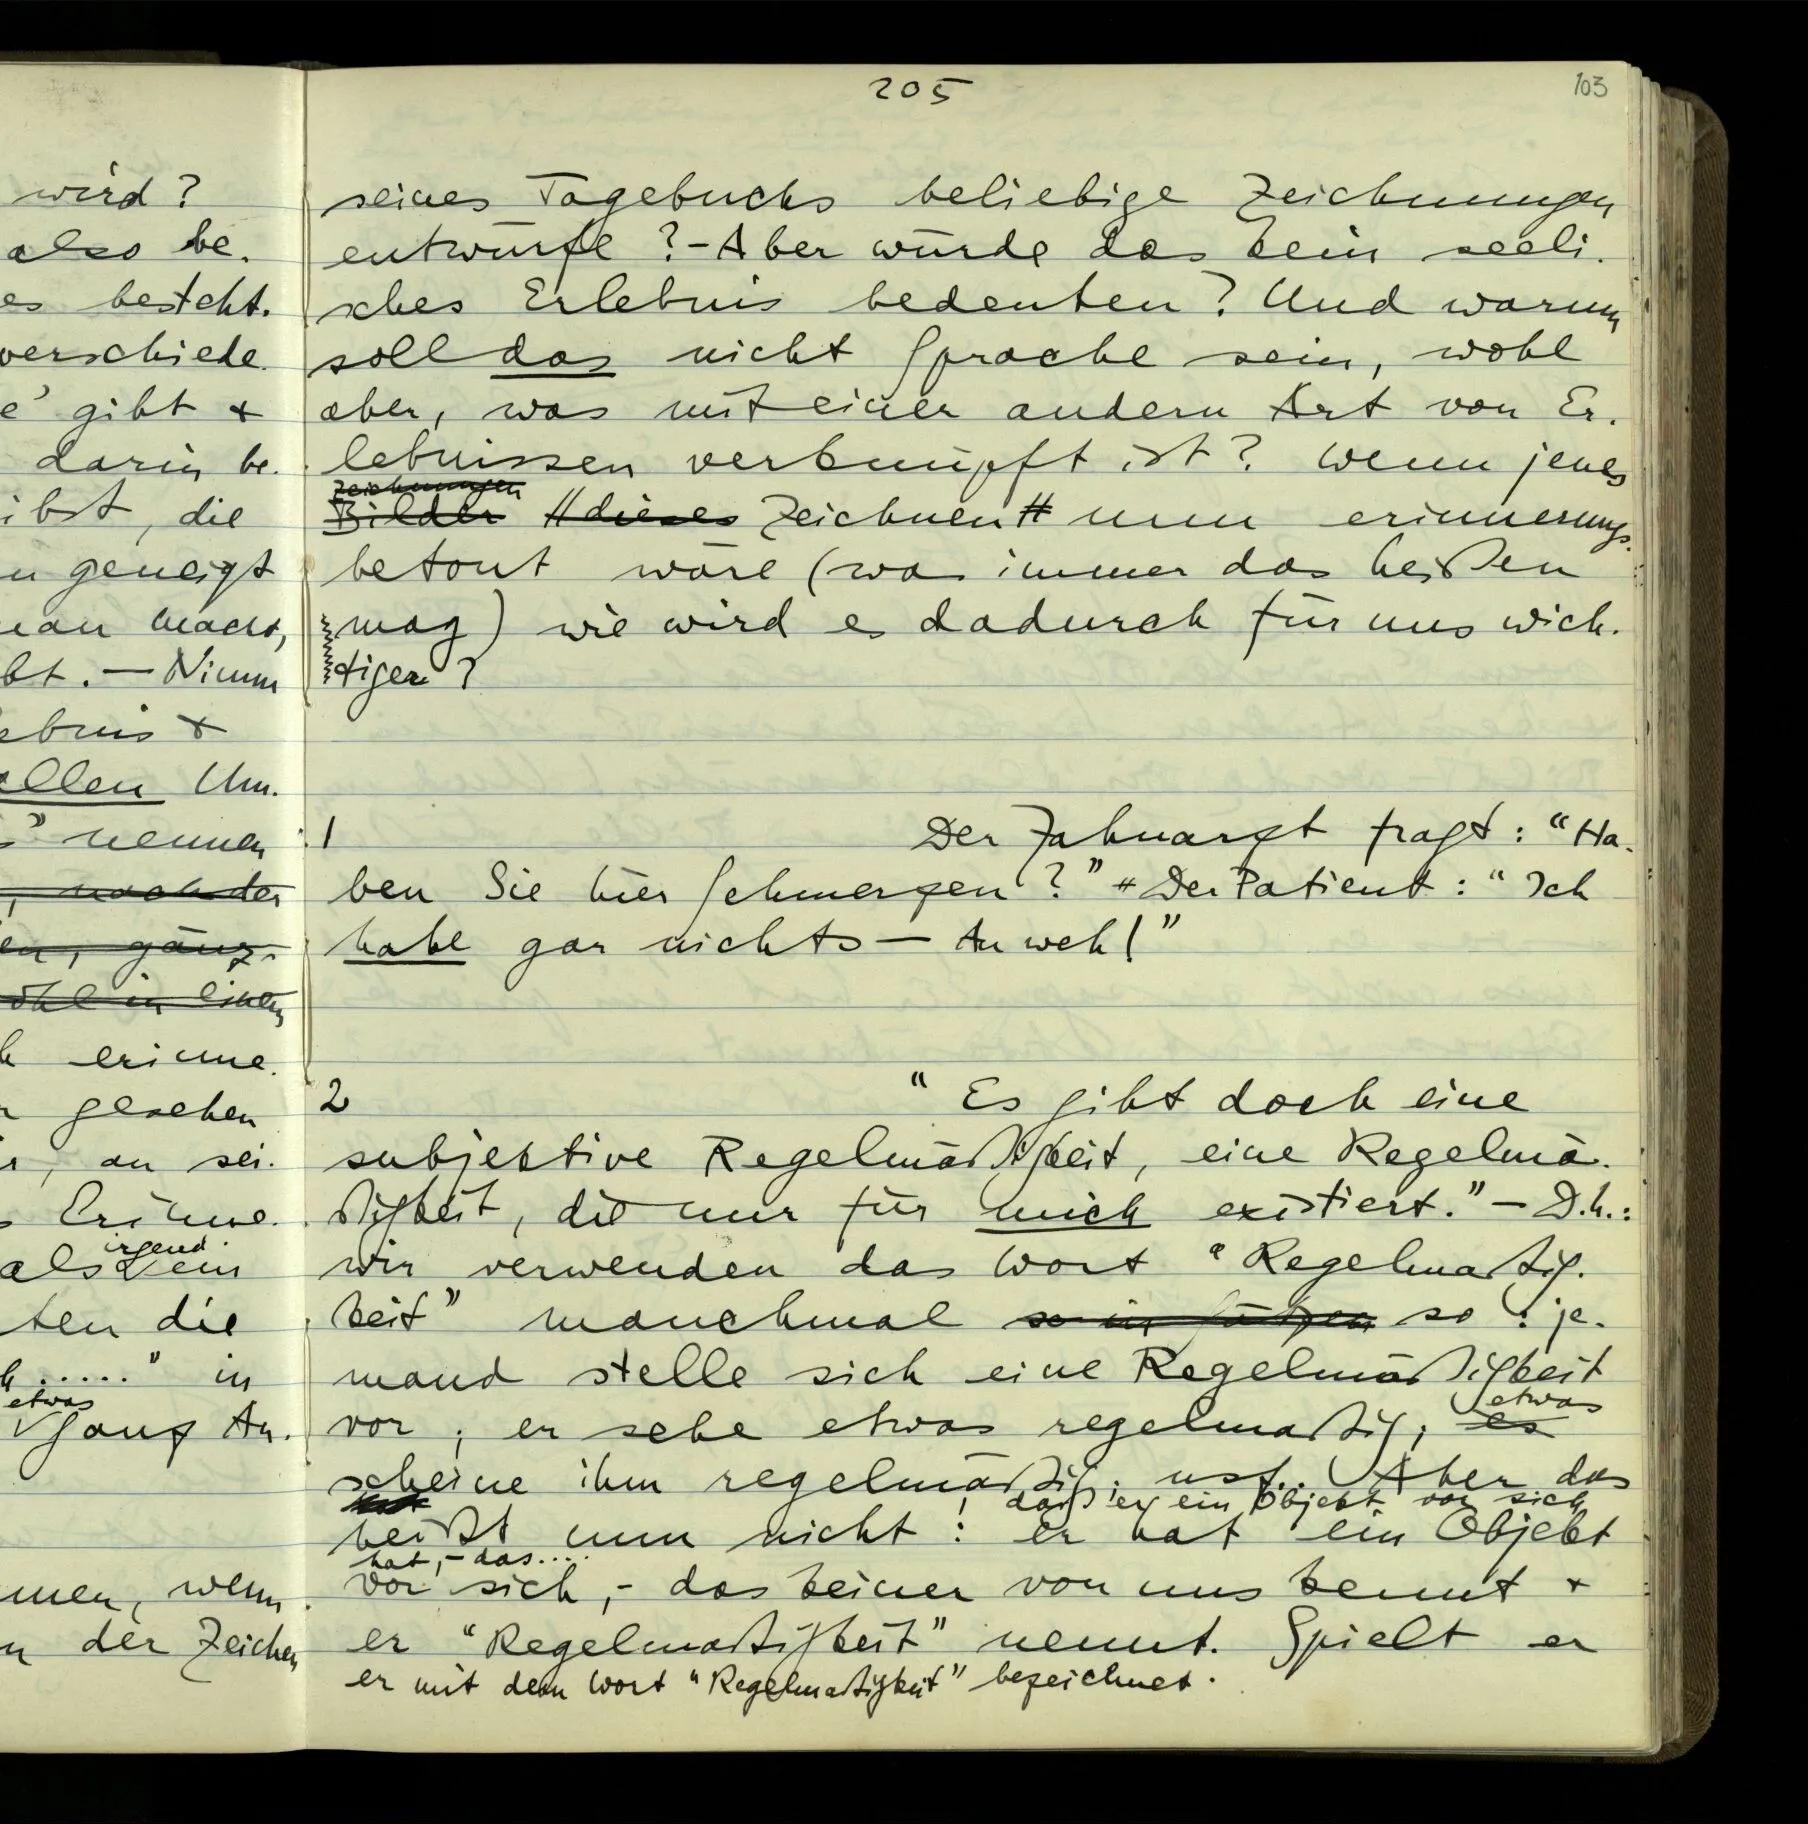 205
103
wird?
also be.
es besteht.
verschiede.
e' gibt +
darin, be.
ibst, die
n geneigt
man macht,
bt. — Nimm
ebnis +
ellen Um.
" nennen
, nach der
en, gänz-
ohl in einem
h erinne.
gesehen
, an sei.
s Erinne.
irgend
als ein
ten die
h ....." in
etwas
ganz An.
men, wenn
n der Zeichen
seines Tagebuchs beliebige Zeichnungen
entwürfe? – Aber würde das kein seeli.
sches Erlebnis bedeuten? Und warum
soll das nicht Sprache sein, wohl
aber, was mit einer andern Art von Er.
lebnissen verknüpft ist? Wenn jenes
Zeichnungen
Bilder // dieses Zeichnen // nun erinnerungs.
betont wäre (was immer das heißen
mag) wie wird es dadurch für uns wich.
tiger?
1 Der Zahnarzt fragt: "Ha.
ben Sie hier Schmerzen?" Der Patient: "Ich
habe gar nichts — Au weh!"
2 "Es gibt doch eine
subjektive Regelmäßigkeit, eine Regelmä.
ßigkeit, die nur für mich existiert." – D.h.:
wir verwenden das Wort "Regelmäßig.
keit" manchmal so in Sätzen so: je.
mand stelle sich eine Regelmäßigkeit
vor; er sehe etwas regelmäßig; es
etwas
scheine ihm regelmäßig; usf.. Aber das
daß er ein Objekt vor sich
heißt nun nicht: er hat ein Objekt
hat, – das....
vor sich, – das keiner von uns kennt +
er "Regelmäßigkeit" nennt. Spielt er
er mit dem Wort "Regelmäßigkeit" bezeichnet.